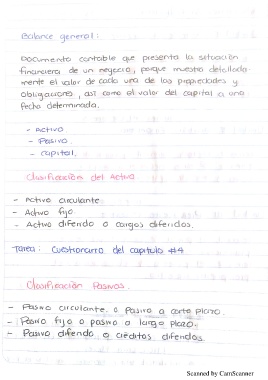 Balance general:
Documento contable que presenta la situación
financiera de un negocio, porque muestra detallada
mente el valor de cada una de las propiedades y
obligaciones, así como el valor del capital a una
fecha determinada.
- Activo
- Pasivo
- capital.
Clasificación del Activo
- Activo circulante
- Activo fijo
- Activo diferido o cargos diferidos.
Tarea: Cuestionario del capitulo #4
Clasificación Pasivos.
- Pasivo circulante o Pasivo a corto plazo.
- Pasivo fijo o pasivo a largo plazo.
- Pasivo diferido o créditos diferidos.
Scanned by CamScanner